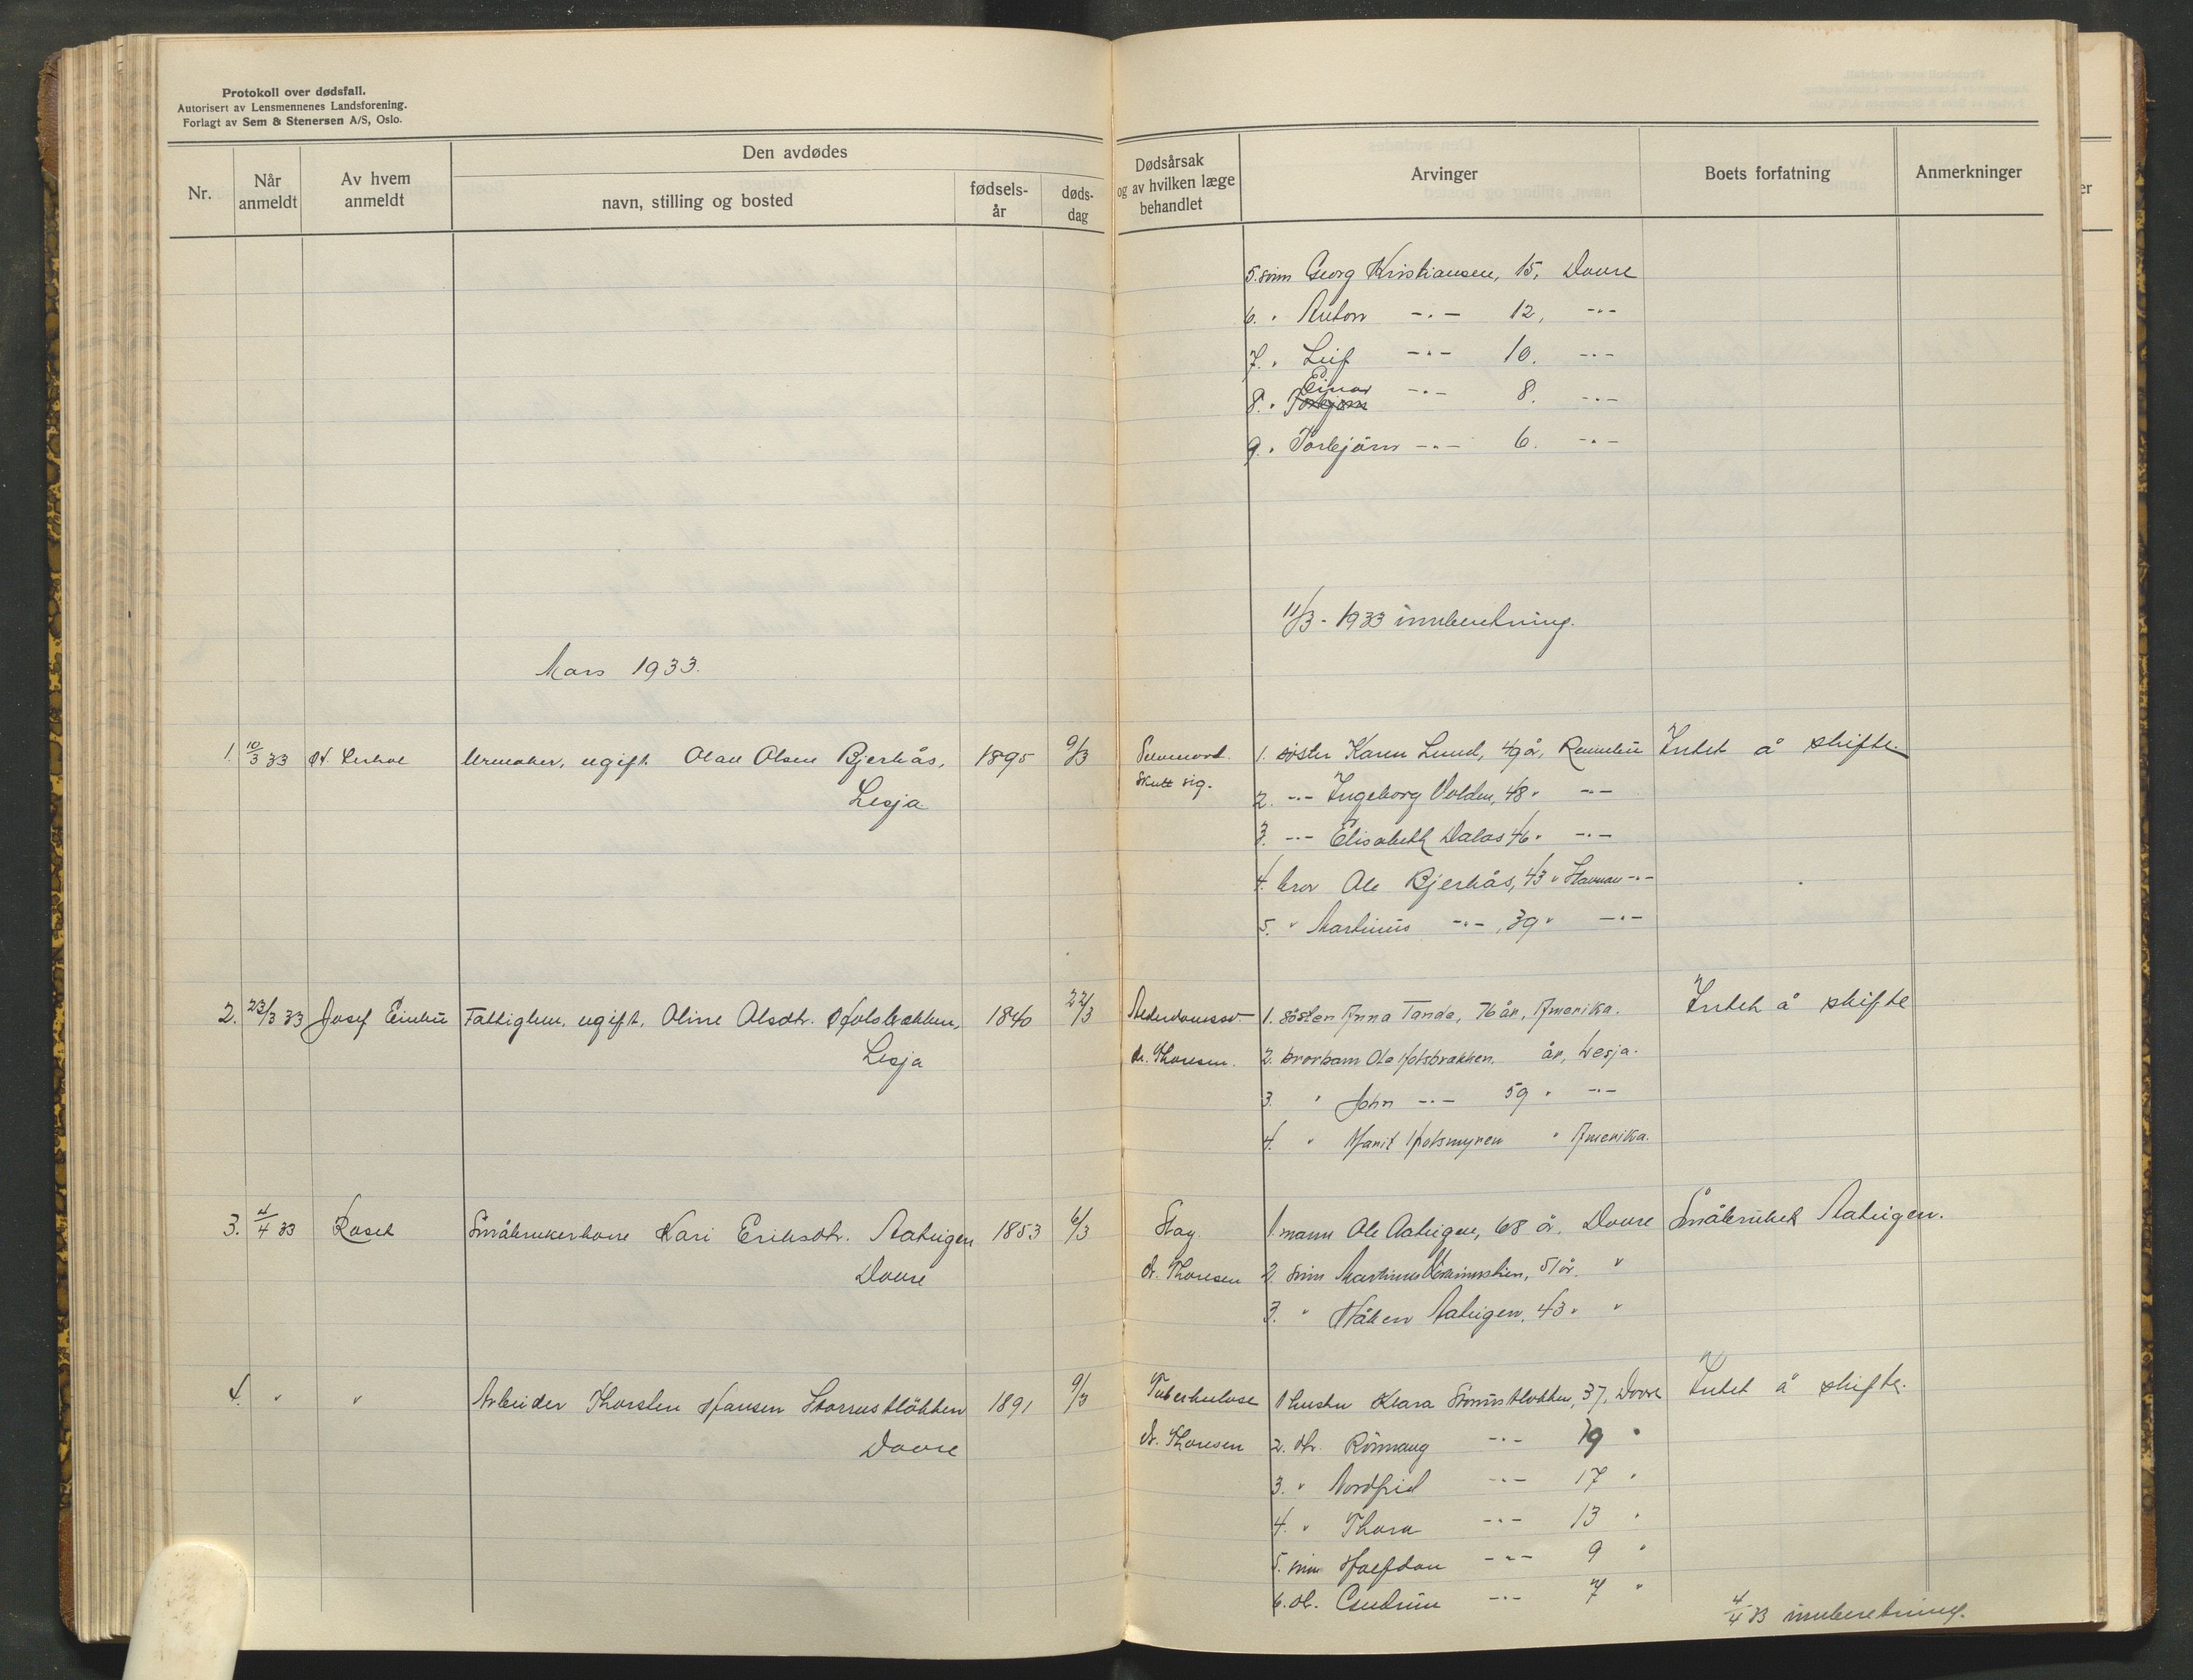 Protokoll over dødsfall.
Autorisert av Lensmennenes Landsforening.
Forlagt av Sem & Stenersen A/S, Oslo.
Nr.
Når anmeldt
Av hvem anmeldt
Den avdødes
navn, stilling og bosted
fødsels-år
døds-dag
Dødsårsak og av hvilken læge behandlet
Arvinger
Boets forfatning
Anmerkninger
5. sønn Georg Kristiansen, 15, Dovre
6. " Anton -"- 12, -"-
7. " Leif -"- 10. -"-
Einar
8. " Torbjørn -"- 8. -"-
9. " Torbjörn -"- 6. -"-
11/3 - 1933 innberetning.
Mars 1933.
1. 10/3 33 Urmaker, ugift. Olav Olsen Bjerkås, 1895 9/3 Selvmord. 1. søster Karen Lund, 49 å, Rennebu Intet å skifte.
Lesja Skutt sig.
2. -"- Ingeborg Volden, 48 " -"-
3. -"- Elisabeth Dalas 46 " -"-
4. bror Ole Bjerkås, 43 " -"-
5. " Martinus -"-, 39 " -"-
2. 23/3 33 Josef Einbu Fattiglem, ugift, Oline Olsdtr. Holsbrekken, 1840 22/3 Alderdomssv. 1. søster Anna Tande, 76 år, Amerika. Intet å skifte
Lesja dr. Thoresen. 2. brorbarn Ole Holsbrækken. år, Lesja.
3. " John -"- 59 " -"-
4. " Marit Holsmyren " Amerika.
3. 4/4 33 Roset Småbrukerkone Kari Eriksdtr. Aateigen 1853 6/3 Slag. 1. mann Ole Aateigen, 68 å. Dovre Småbruket Aateigen.
Dovre dr. Thoresen 2. sønn Martinus 51 år. "
3. " Håken Aateigen, 43 " "
4. " " Arbeider Thorsten Hansen Storrustløkken 1891 9/3 Tuberkulose 1 hustru Klara Storrustløkken, 37, Dovre Intet å skifte.
Dovre dr. Thoresen 2. dtr. Rönnaug -"- 19 "
3. " Nordfrid -"- 17 "
4. " Thora -"- 13 "
5. sønn Halfdan -"- 9 "
6. dtr. Gudrun -"- 7 "
4/4 33 innberetning.